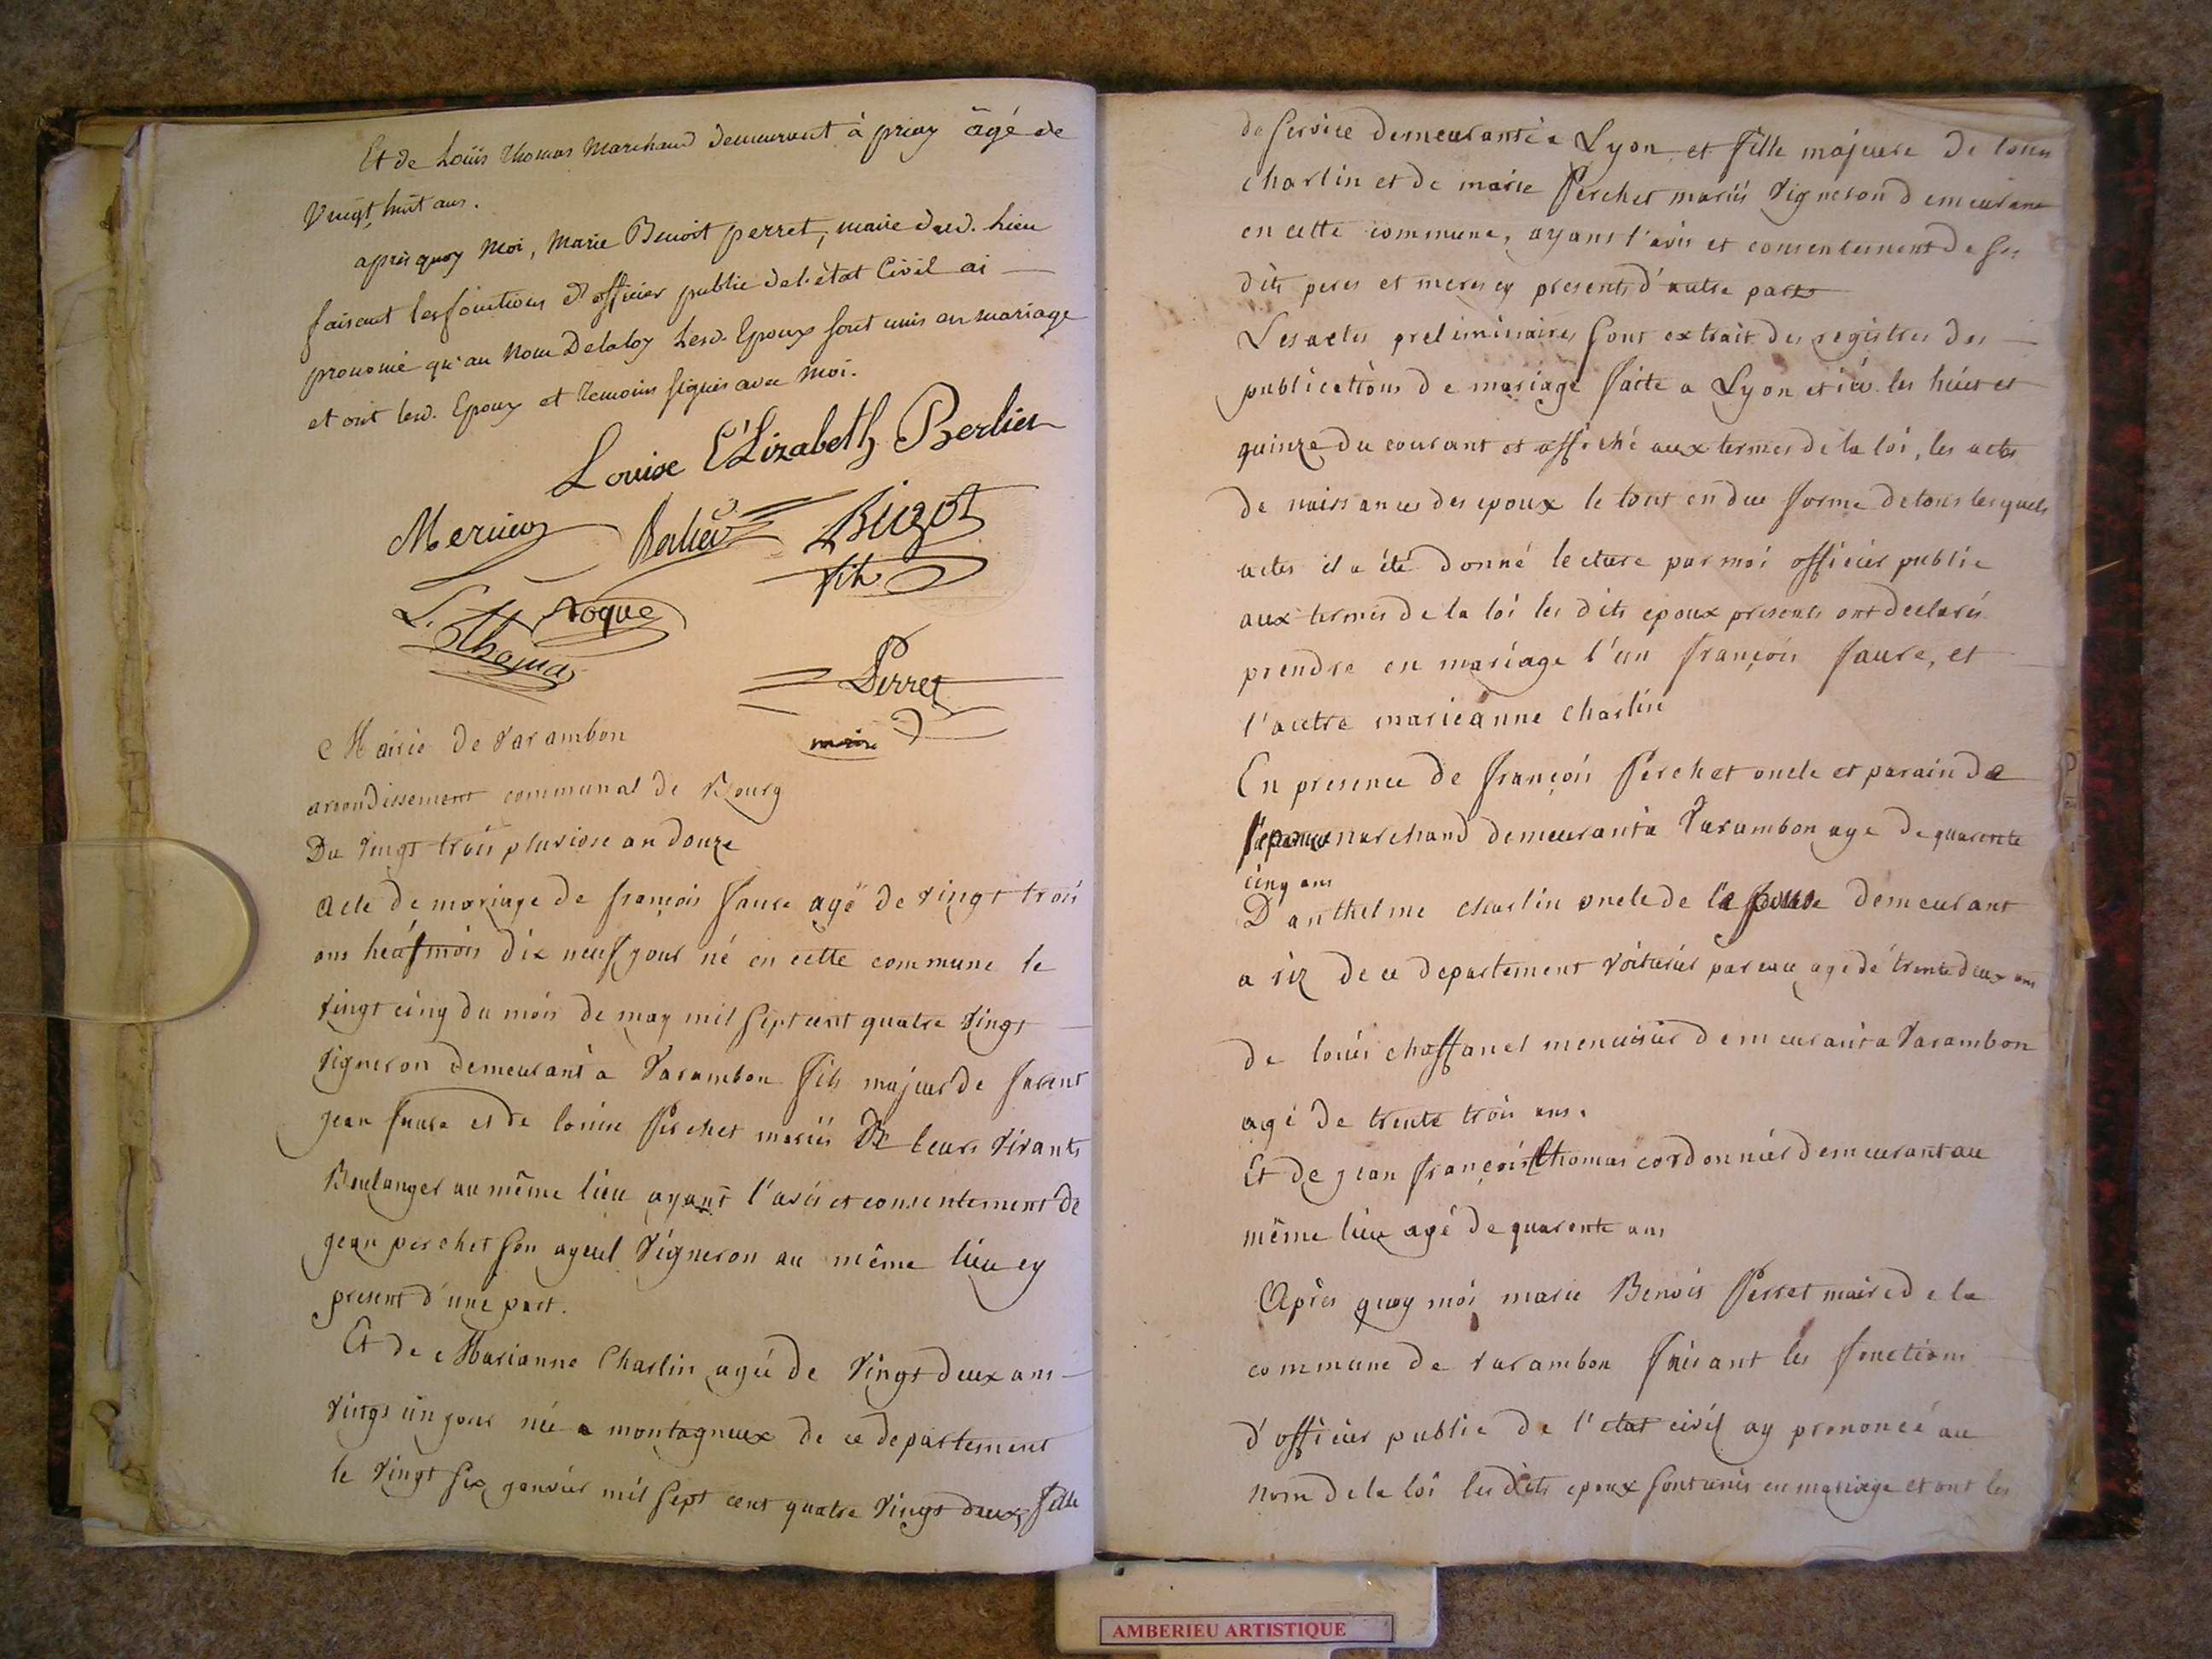 Et de Loüis Thomas Marchand demeurant à priay âgé de
Vingt huit ans.
après quoy Moi, Marie Benoit perret, maire dud. Lieu
faisant les fonctions d'officier public de l'état Civil ai
prononcé qu'au Nom de la loy Lesd. Epoux sont unis en mariage
et ont lesd. Epoux et Temoins signés avec Moi.
Louise Elizabeth Berlier
Merieux Berlier Buget
fils
L. Thomas Roque
Perret
maire
Mairie de Varambon
arrondissement communal de Bourg
Du Vingt trois pluviose an douze
acte de mariage de françois faure agé de vingt trois
ans mois dix neuf jour né en cette commune le
Vingt cinq du mois de may mil sept cent quatre vingt
Vigneron demeurant a Varambon fils majeur de furent
jean faure et de louise Perchet mariés De leurs vivants
Boulanger au même lieu ayant l'avis et consentement de
jean perchet son ayeul Vigneron au même lieu cy
present d'une part.
Et de Marianne Charlin agée de Vingt deux ans
vingt un jour née a montagneux de ce departement
le Vingt six janvier mil sept cent quatre Vingt deux, fille
de service demeurant a Lyon et fille majeure de louis
charlin et de marie Perchet mariés Vigneron demeurant
en cette commune, ayant l'avis et consentement de ses
dits peres et meres cy presents d'autre part
Les actes preliminaires sont extrait des registres des
publications de mariage faite a Lyon et ici les huit et
quinze du courant et affiché aux termes de la loi, les actes
de naissances des epoux le tout en due forme de tous lesquels
actes il a été donné lecture par moi officier public
aux termes de la loi les dits epoux presents ont declarés
prendre en mariage l'un françois faure, et
l'autre marieanne charlin
En presence de françois Perchet oncle et parain de
l'epouse marchand demeurant a Varambon age de quarente
cinq ans
D'anthelme charlin oncle de l'epouse demeurant
a de ce departement voiturier par eau agé de trente deux ans
de louis chaffanel menuisier demeurant a Varambon
agé de trente trois ans.
Et de jean françois thomas cordonnier demeurant au
même lieu agé de quarente ans
Après quoy moi marie Benois Perret maire de la
commune de varambon faisant les fonctions
d'officier public de l'etat civil ay prononcé au
nom de la loi les dits epoux sont unis en mariage et ont les
AMBERIEU ARTISTIQUE